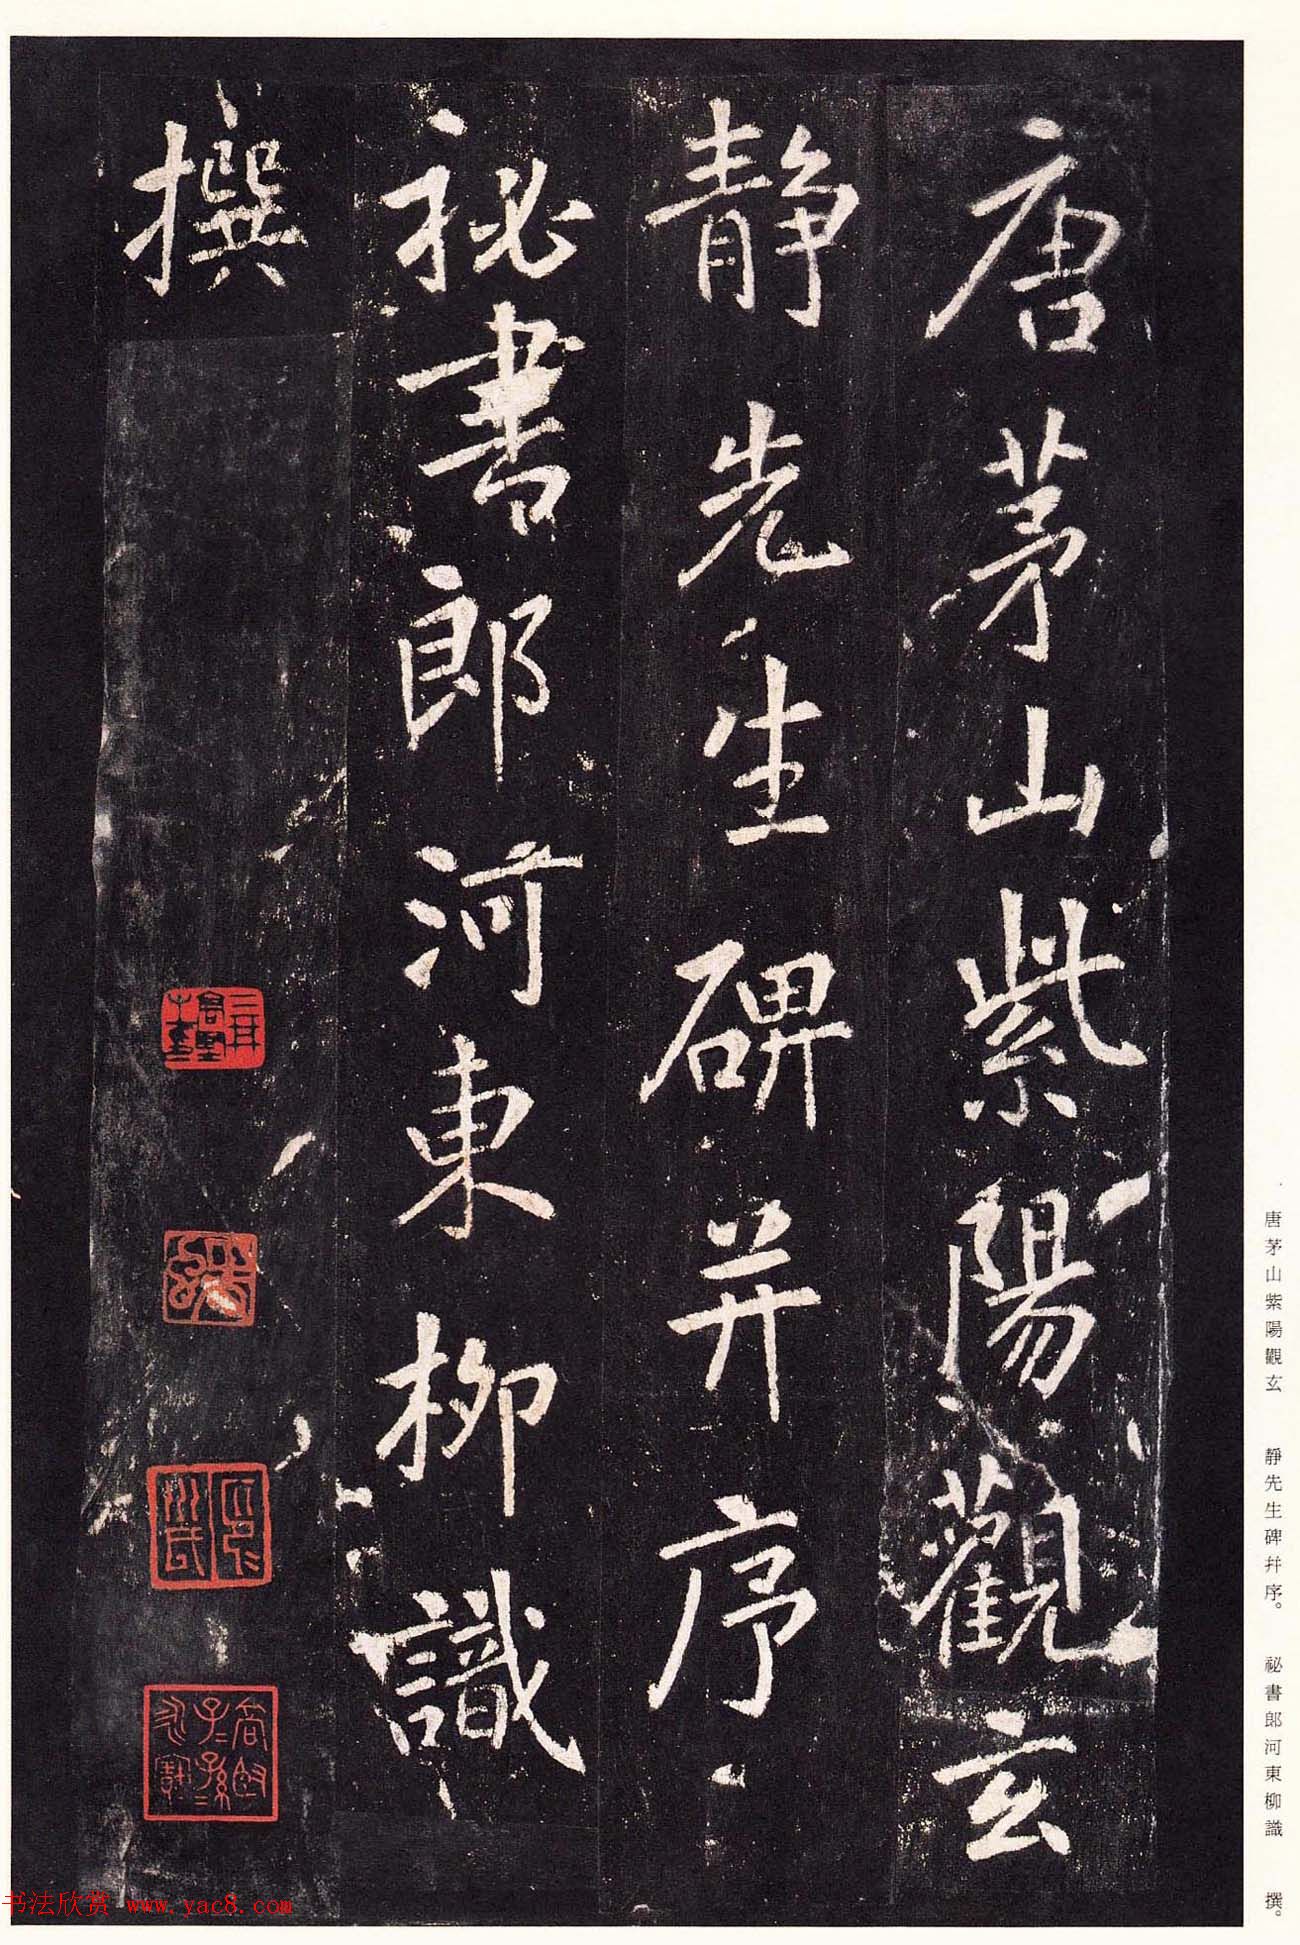 唐茅山紫陽觀玄
靜先生碑并序
祕書郎河東柳識
撰
唐茅山紫陽觀玄 靜先生碑幷序。 祕書郎河東柳識 撰。
书法欣赏 www.yac8.com